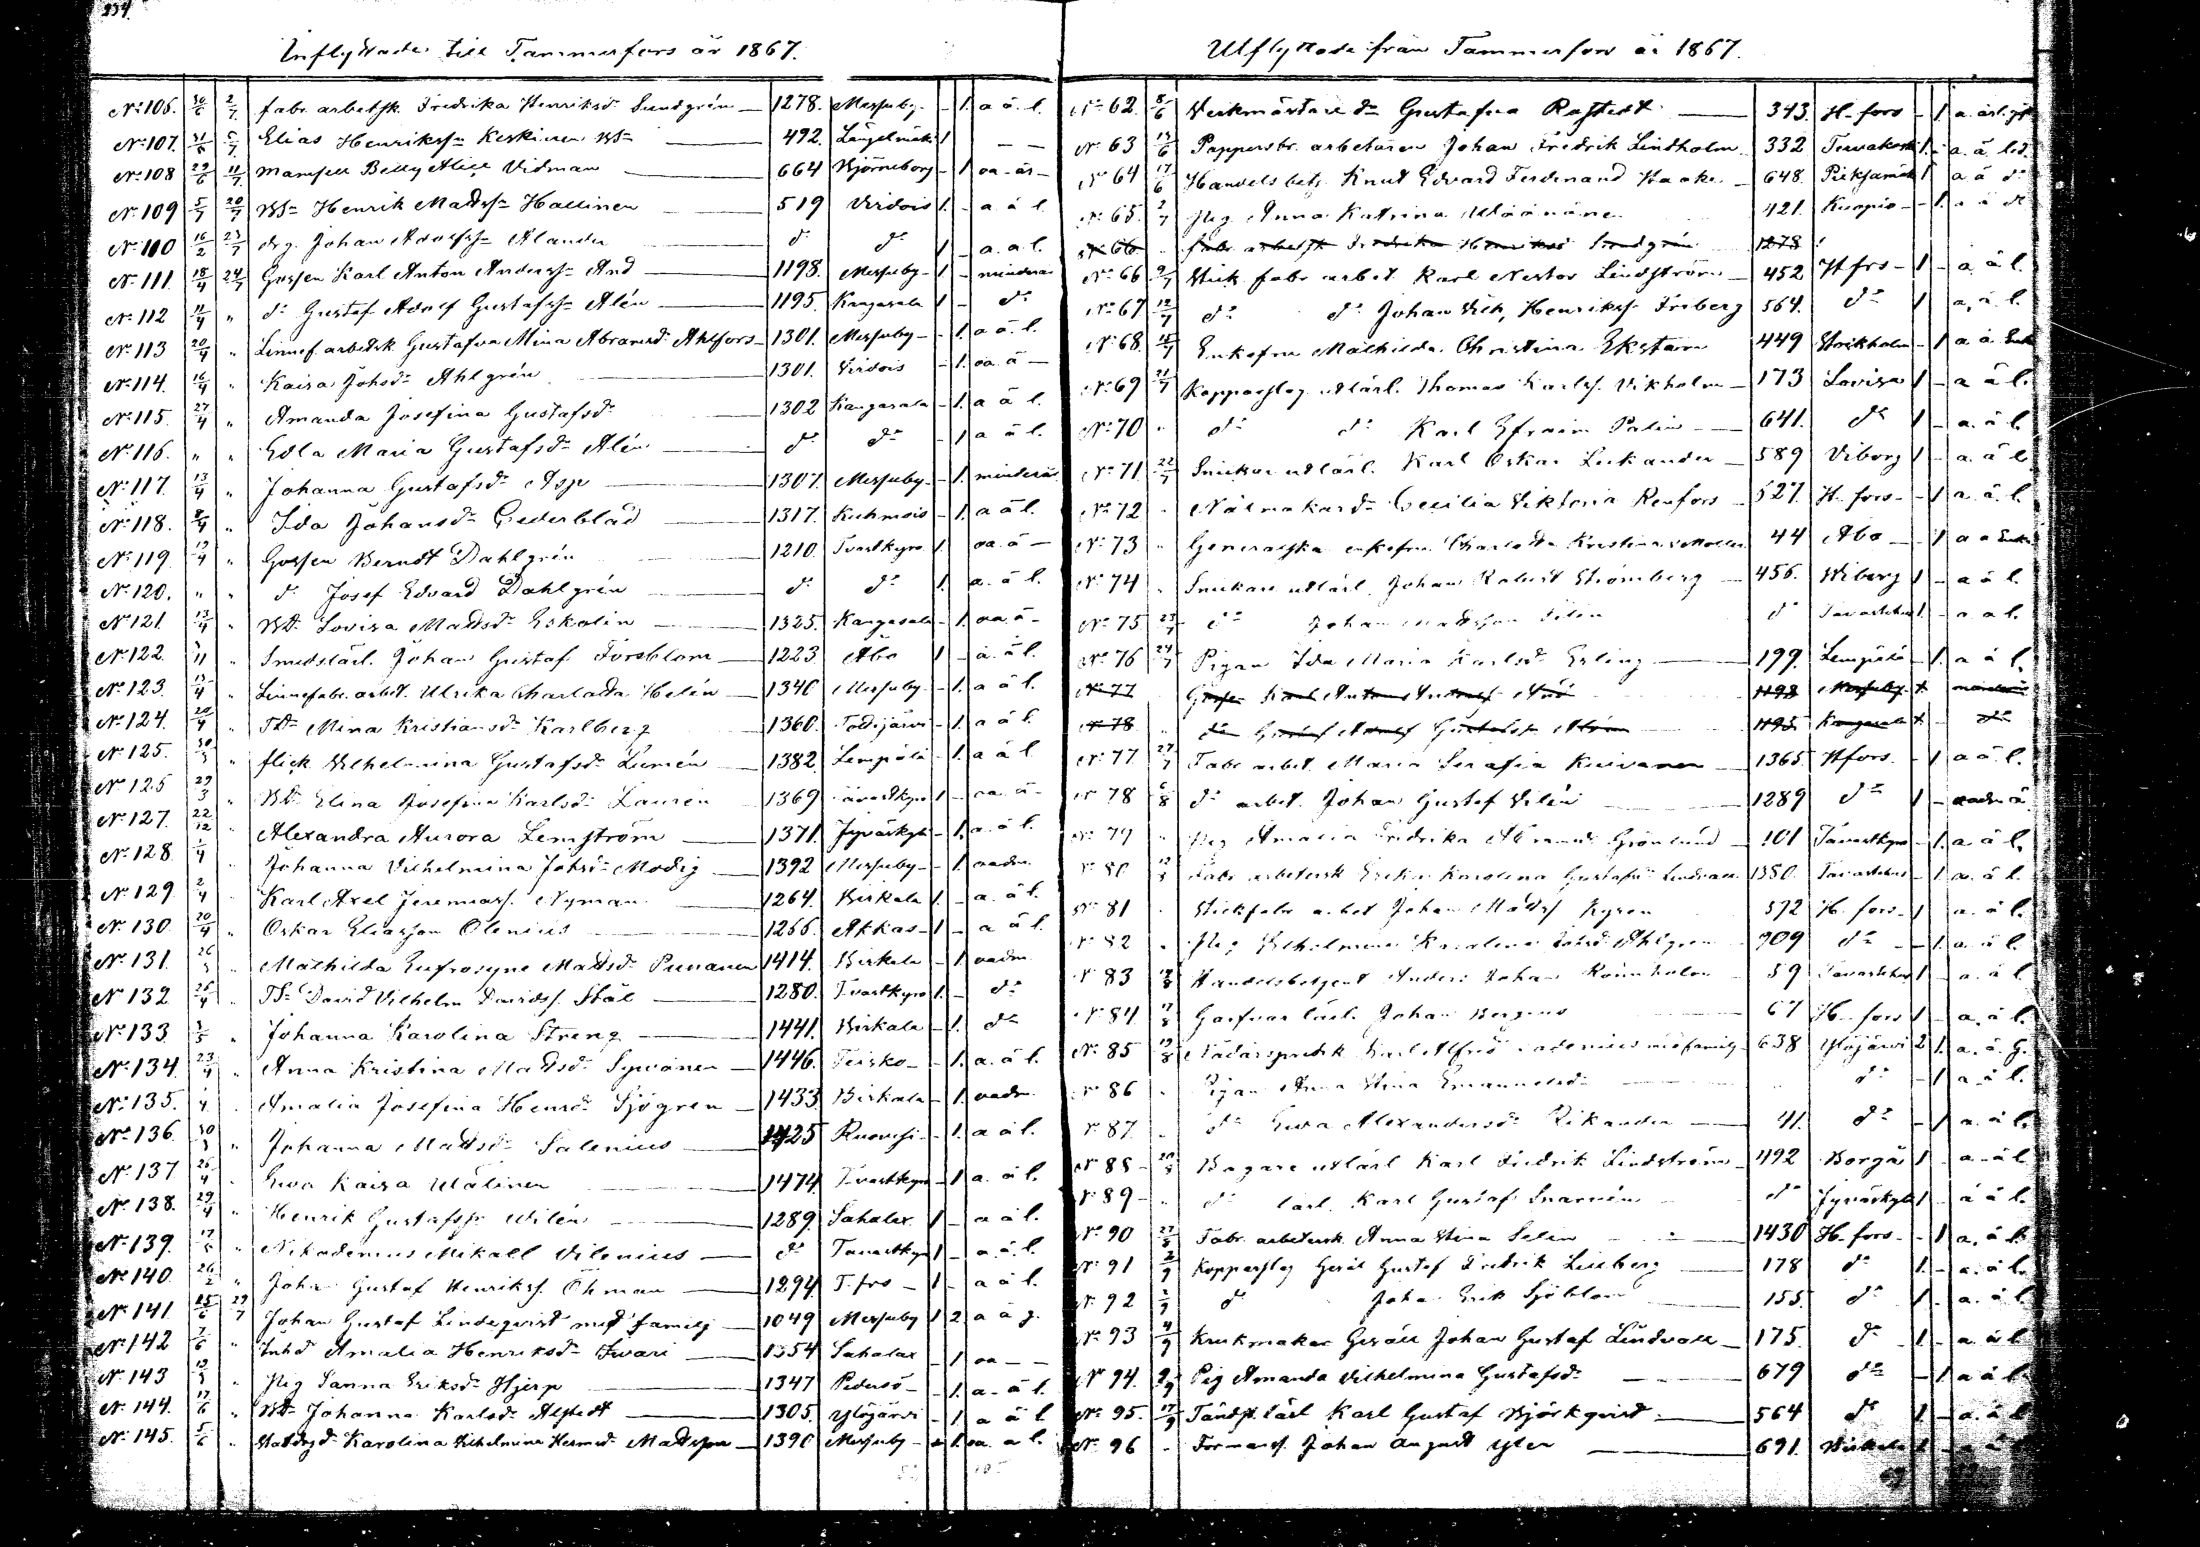 234.
Inflyttade till Tammerfors år 1867.
No 106. 30/6 2/7 fabr. arbetsk. Fredrika Henriksdr Sundgrén 1278. Messuby - 1. a. ä. l.
No 107. 5/7 Elias Henrikss:n Keskinen 492. Längelmäki 1 - -
No 108 29/6 11/7 Mamsell Betty Alice Vidman 664 Björneborg - 1 oa. är -
No 109 5/7 20/7 Henrik Matts:n Hallinen 519 Virdois 1. - a. ä. l.
No 110 16/2 23/7 drg. Johan Adolfs:n Alander d:o d:o 1 - a. a. l.
No 111. 18/4 24/7 Gossen Karl Anton Anderss:n And 1198. Messuby - 1 - minderår
No 112 11/4 " d:o Gustaf Adolf Gustafss:n Alén 1195. Kangasala 1 - d:o
No 113 20/4 " Linnef. arbetsk Gustafva Mina Abramsd. Ahlfors 1301. Messuby - - 1. a ä. l.
No 114. 16/4 " Kaisa Johsdr Ahlgrén 1301. Virdois - 1. oa. ä -
No 115. 27/4 " Amanda Josefina Gustafsdr 1302 Kangasala - 1. a ä l.
No 116. " " Edla Maria Gustafsdr Alén d:o d:o - 1 a ä l.
No 117. 13/4 " Johanna Gustafsdr Asp 1307. Messuby - 1. minderår
No 118. 8/4 " Ida Johansdr Cederblad 1317. Kuhmois - 1. a ä l.
No 119. 13/4 " Gossen Berndt Dahlgrén 1210. Tvastkyro 1. oa. ä -
No 120. " " d:o Josef Edvard Dahlgrén d:o d:o 1. a. ä l.
No 121. 13/4 " Lovisa Mattsdr Eskolin 1325. Kangasala - 1. oa. ä -
No 122. " Smedslärl. Johan Gustaf Forsblom 1223 Åbo 1 - a. ä l.
No 123. 13/4 " Linnefabr. arbet. Ulrika Charlotta Helén 1340 Messuby - 1. a ä l.
No 124. 20/4 " Mina Kristiansdr Karlberg 1360. Tottijärvi - 1. a ä l.
No 125. 30/3 " flick Vilhelmina Gustafsdr Lumén 1382. Lempälä - 1. a ä l.
No 125 29/3 " Elina Josefina Karlsdr Laurén 1369 Tavastkyro 1 - oa. ä -
No 127. 22/12 " Alexandra Aurora Lemström 1371. Jyväskyla - 1. a. ä l.
No 128. 1/4 " Johanna Vilhelmina Johsdr Modig 1392 Messuby - 1 oadm.
No 129. 2/4 " Karl Axel Jeremiass. Nyman 1264. Birkala 1. - a. ä l.
No 130. 20/4 " Oskar Eliasson Olenius 1266. Akkas - 1 - a ä l.
No 131. 26/3 " Mathilda Eufrosyne Mattsdr Punanen 1414. Birkala - 1 oadm
No 132 25/4 " David Vilhelm Davids:s. Stål 1280. Tvastkyro 1. - d:o
No 133. 3/5 " Johanna Karolina Streng 1441. Birkala - 1. d:o
No 134. 23/4 " Anna Kristina Mattsdr Syvänen 1446. Teisko - - 1. a. ä l.
No 135. " Amalia Josefina Henrdr Sjögren 1433 Birkala - 1. oadm.
No 136 30/3 " Johanna Mattsdr Salenius 1425 Ruovesi - 1. a ä l.
No 137 26/4 " Eva Kaisa Wälinen 1474. Tvastkyro - 1 a. ä l.
No 138. 29/4 " Henrik Gustafss:n Wilén 1289. Sahalax 1 - a ä l.
No 139. " Nikodemus Mikael Vilenius d:o Tavastkyro 1 - a. ä l.
No 140. 26/2 " Johan Gustaf Henrikss. Öhman 1294. T. frs - 1 - a ä l.
No 141. 25/6 29/7 Johan Gustaf Linderqvist med familj 1049 Messuby 1 2 a ä g.
No 142 7/6 " Inhd Amalia Henriksdr Iwari 1354 Sahalax - 1 oa - -
No 143 " Pig Sanna Eriksdr Hjerp 1347 Pedersö - 1. a - ä l.
No 144. 17/6 " Johanna Karlsdr Alstedt 1305. Ylöjärvi - 1 a ä l
No 145. 5/6 " Karolina Vilhelmina Hermsdr Mattsson 1390 Messuby - 1. oa. a l.
Utflyttade från Tammerfors år 1867.
No 62. 8/6 Verkmästare dr Gustafva Rastedt 343. H-fors - 1
No 63 13/6 Papperbr. arbetaren Johan Fredrik Lindholm 332 Tervakoski 1. - a. ä led.
No 64 17/6 Handels betj. Knut Edvard Ferdinand Haake 648. Pieksämäki 1 a ä d:o
No 65. 2/7 Pig Anna Katrina Wäänäne 421. Kuopio - - 1. a ä d:o
No 66 " fabr arbetsk Fredrika Henriksd Sundgrén 1278
No 66 9/7 Stick fabr arbet Karl Nestor Lindström 452 H frs - 1 - a. ä l.
No 67 12/7 d:o d:o Johan Vilh. Henrikss. Friberg 564. d:o 1 a. ä l.
No 68. Enkefru Mathilda Christina Ekstam 449 Stockholm - 1 a. ä Enk
No 69 21/7 Kopparslag. utlärl. Thomas Karls. Vikholm 173 Lovisa 1 - a ä l.
No 70 " d:o d:o Karl Efraim Palin 641. d:o 1 - a. ä l.
No 71 22/7 Snickar utlärl. Karl Oskar Leckander 589 Viborg 1 - a. ä l
No 72 " Nålmakar dr Cecilia Viktoria Renfors 527. H. fors - - 1 a. ä. l.
No 73 " Generalska enkefru Charlotta Kristina v. Moller 44 Åbo - 1 a a Enk
No 74 " Snickare utlärl. Johan Robert Strömberg 456. Wiborg 1 - a ä l.
No 75 23/7 d:o Johan Mattsson Felin d:o Tavastehus 1. - a a l.
No 76 24/7 Pigan Ida Maria Karlsdr Erling 199. Lempälä - 1. a ä l.
No 77 Gossen Karl Anton Anderss And 1198 Messuby 1. minderår
No 78 d:o Gustaf Adolf Gustafss Alén 1195 Kangasala 1 - d:o
No 77 27/7 Fabr arbet. Maria Serafia Kuivanen 1365 Hfors. - 1 a ä l.
No 78 6/8 d:o arbet. Johan Gustaf Vilén 1289 d:o 1 - oadm ä.
No 79 " Pig Amalia Fredrika Abramsd. Grönlund 101 Tavastkyro - 1. a. ä l.
No 80 12/8 Fabr arbetersk Erika Karolina Gustafsdr Lindvall 1350. Tavastehus - 1. a. ä l.
No 81 " Stickfabr arbet Johan Matts:s Kyrön 572 H. fors - 1 a. ä l.
No 82 " Pig Vilhelmina Karolina Johsd. Ahlgren 709 d:o - 1. a. ä l.
No 83 Handelsbetjent Anders Johan Rönnholm 59 Tavastehus 1 - a. ä l.
No 84. Garfvar lärl. Johan Bergens 67 H. fors 1 - a. ä l.
No 85 Karl Alfred med familj 638 Ylöjärvi 2 1. a. ä. g.
No 86 " Pigan Anna Stina Emanuelsdr d:o - 1 a. ä l.
No 87. " d:o Eva Alexandersdr Rikander 41. d:o 1 a. ä l.
No 88 - 20/8 Bagare utlärl Karl Fredrik Lindström 492 Borgå 1 - a. ä l
No 89 - " d:o lärl. Karl Gustaf Snarvén d:o Jyväskyla 1 - ä ä l.
No 90 27/8 Fabr. arbetersk Anna Stina Selin 1430 H. fors - - 1 a. ä l.
No 91 2/9 Kopparslag Gesäll Gustaf Fredrik Lindberg 178 d:o 1. - a. ä l.
No 92 d:o Johan Erik Sjöblom 155. d:o 1. - a. ä l.
No 93 4/9 Krukmakar Gesäll Johan Gustaf Lindvall 175. d:o 1 - a. ä l.
No 94. 9/9 Pig Amanda Vilhelmina Gustafsdr 679 d:o - 1 a ä l.
No 95. 17/9 Tändst. lärl Karl Gustaf Björkqvist 564 d:o 1 - a. ä l.
No 96 " Formans Johan August Ylen 691. Birkala 1 - a ä l